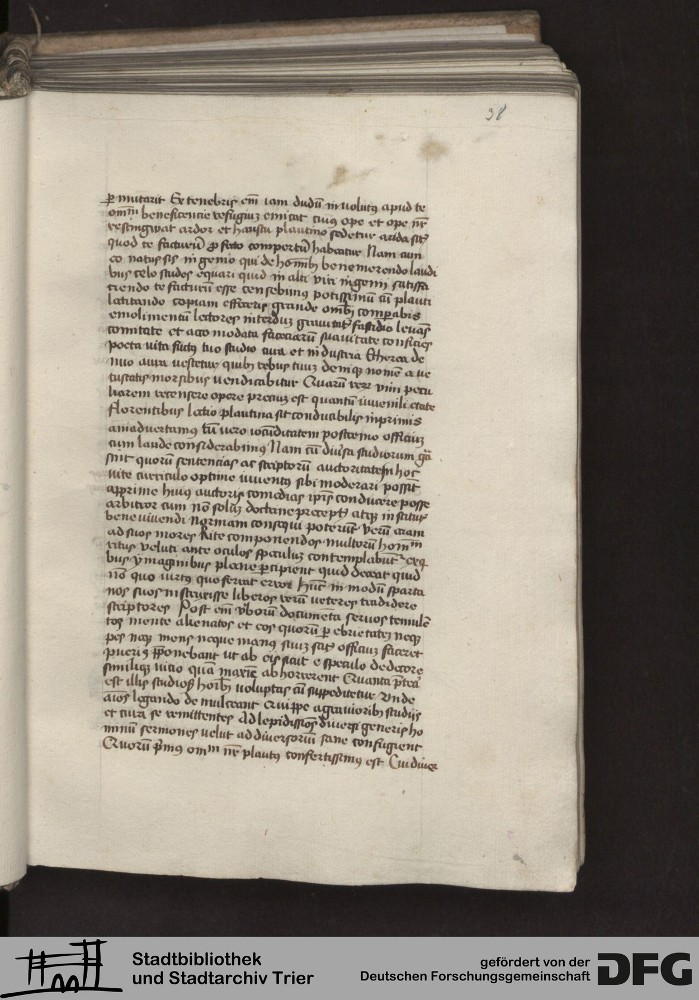 38
ꝑmutarit Ex tenebris em̄ iam dudū involutꝯ apud te
om̄m beneficencie refugiuʒ emicat cuius ope et ope nr̄e
restingwat ardor et haustu plautino sedetur arida sitꝭ
quod te facturū ꝓ scto compertū habeatur Nam cum
eo natus sis ingenio qui de hoīmbꝯ benemerendo laudi
bus celo studes equari quid in alti viri ingenii satisfa
ciendo te facturū esse censebimꝯ potissimū cū plauti
latitando copiam effeceris grande om̄ibꝯ comꝑabis
emolimentū lectores interduʒ grauitatꝭ fastidio levās
comitate et aco modata faceciarū suauitate conficies
poeta vita fūctꝯ tuo studio cura et industria Etherea de
nuo aura vescetur quibꝯ rebus tuuʒ deniqꝫ nomē a ve
tustatis morsibus vendicabitur Quarū rerꝝ vim pecu
liarem recensere opere precium est quantū iuvenili etate
florentibus lectio plautina sit conducibilis inprimis
aīadvertamus tū vero iocūditatem postremo officiuʒ
cum laude considerabimꝯ Nam cū diūsa studiorum gn̄a
sint quorū sentencias ac scriptorū autoritatem hoc
vite curriculo optime iuventꝯ sibi moderari possit
apprime huiꝯ auctoris comedias ip̄is conducere posse
arbitror cum nō solū doctrine preceptꝭ atqꝫ institutꝭ
bene vivendi normam consequi poterūt verū etiam
ad suos mores rite componendos multorū hoīm
vitas veluti ante oculos speculuʒ contemplabūt
bus ymaginibus plane ꝑcipient quid deceat quid
nō quo virtꝯ quo ferat error Hūc in modū sparta
nos suos instruxisse liberos verū veteres tradidere
scriptores Post em̄ vborū documēta servos temulē
tos mente alienatos et eos quorū ꝑ ebrietatem neqꝫ
pes neqꝫ mens neque manꝯ suuʒ satꝭ officiuʒ faceret
pueris ꝓponebant ut ab eis sicut e speculo dedecore
similiqꝫ vitio quā maxīe abhorrerent Quanta p̄terea
est illis studiosꝭ hoībꝯ voluptas cū suppeditetur vnde
aīos legendo demulceant Quippe a gravioribꝯ studiis
et cura se remittentes Ad lepidissimos diversi generis ho
minū sermones velut ad diversoriū sane confugient
Quorū p̄mus om̄m nr̄ plautꝯ confertissimus est Cui diuer
Stadtbibliothek
und Stadtarchiv Trier
gefördert von der
Deutschen Forschungsgemeinschaft
DFG